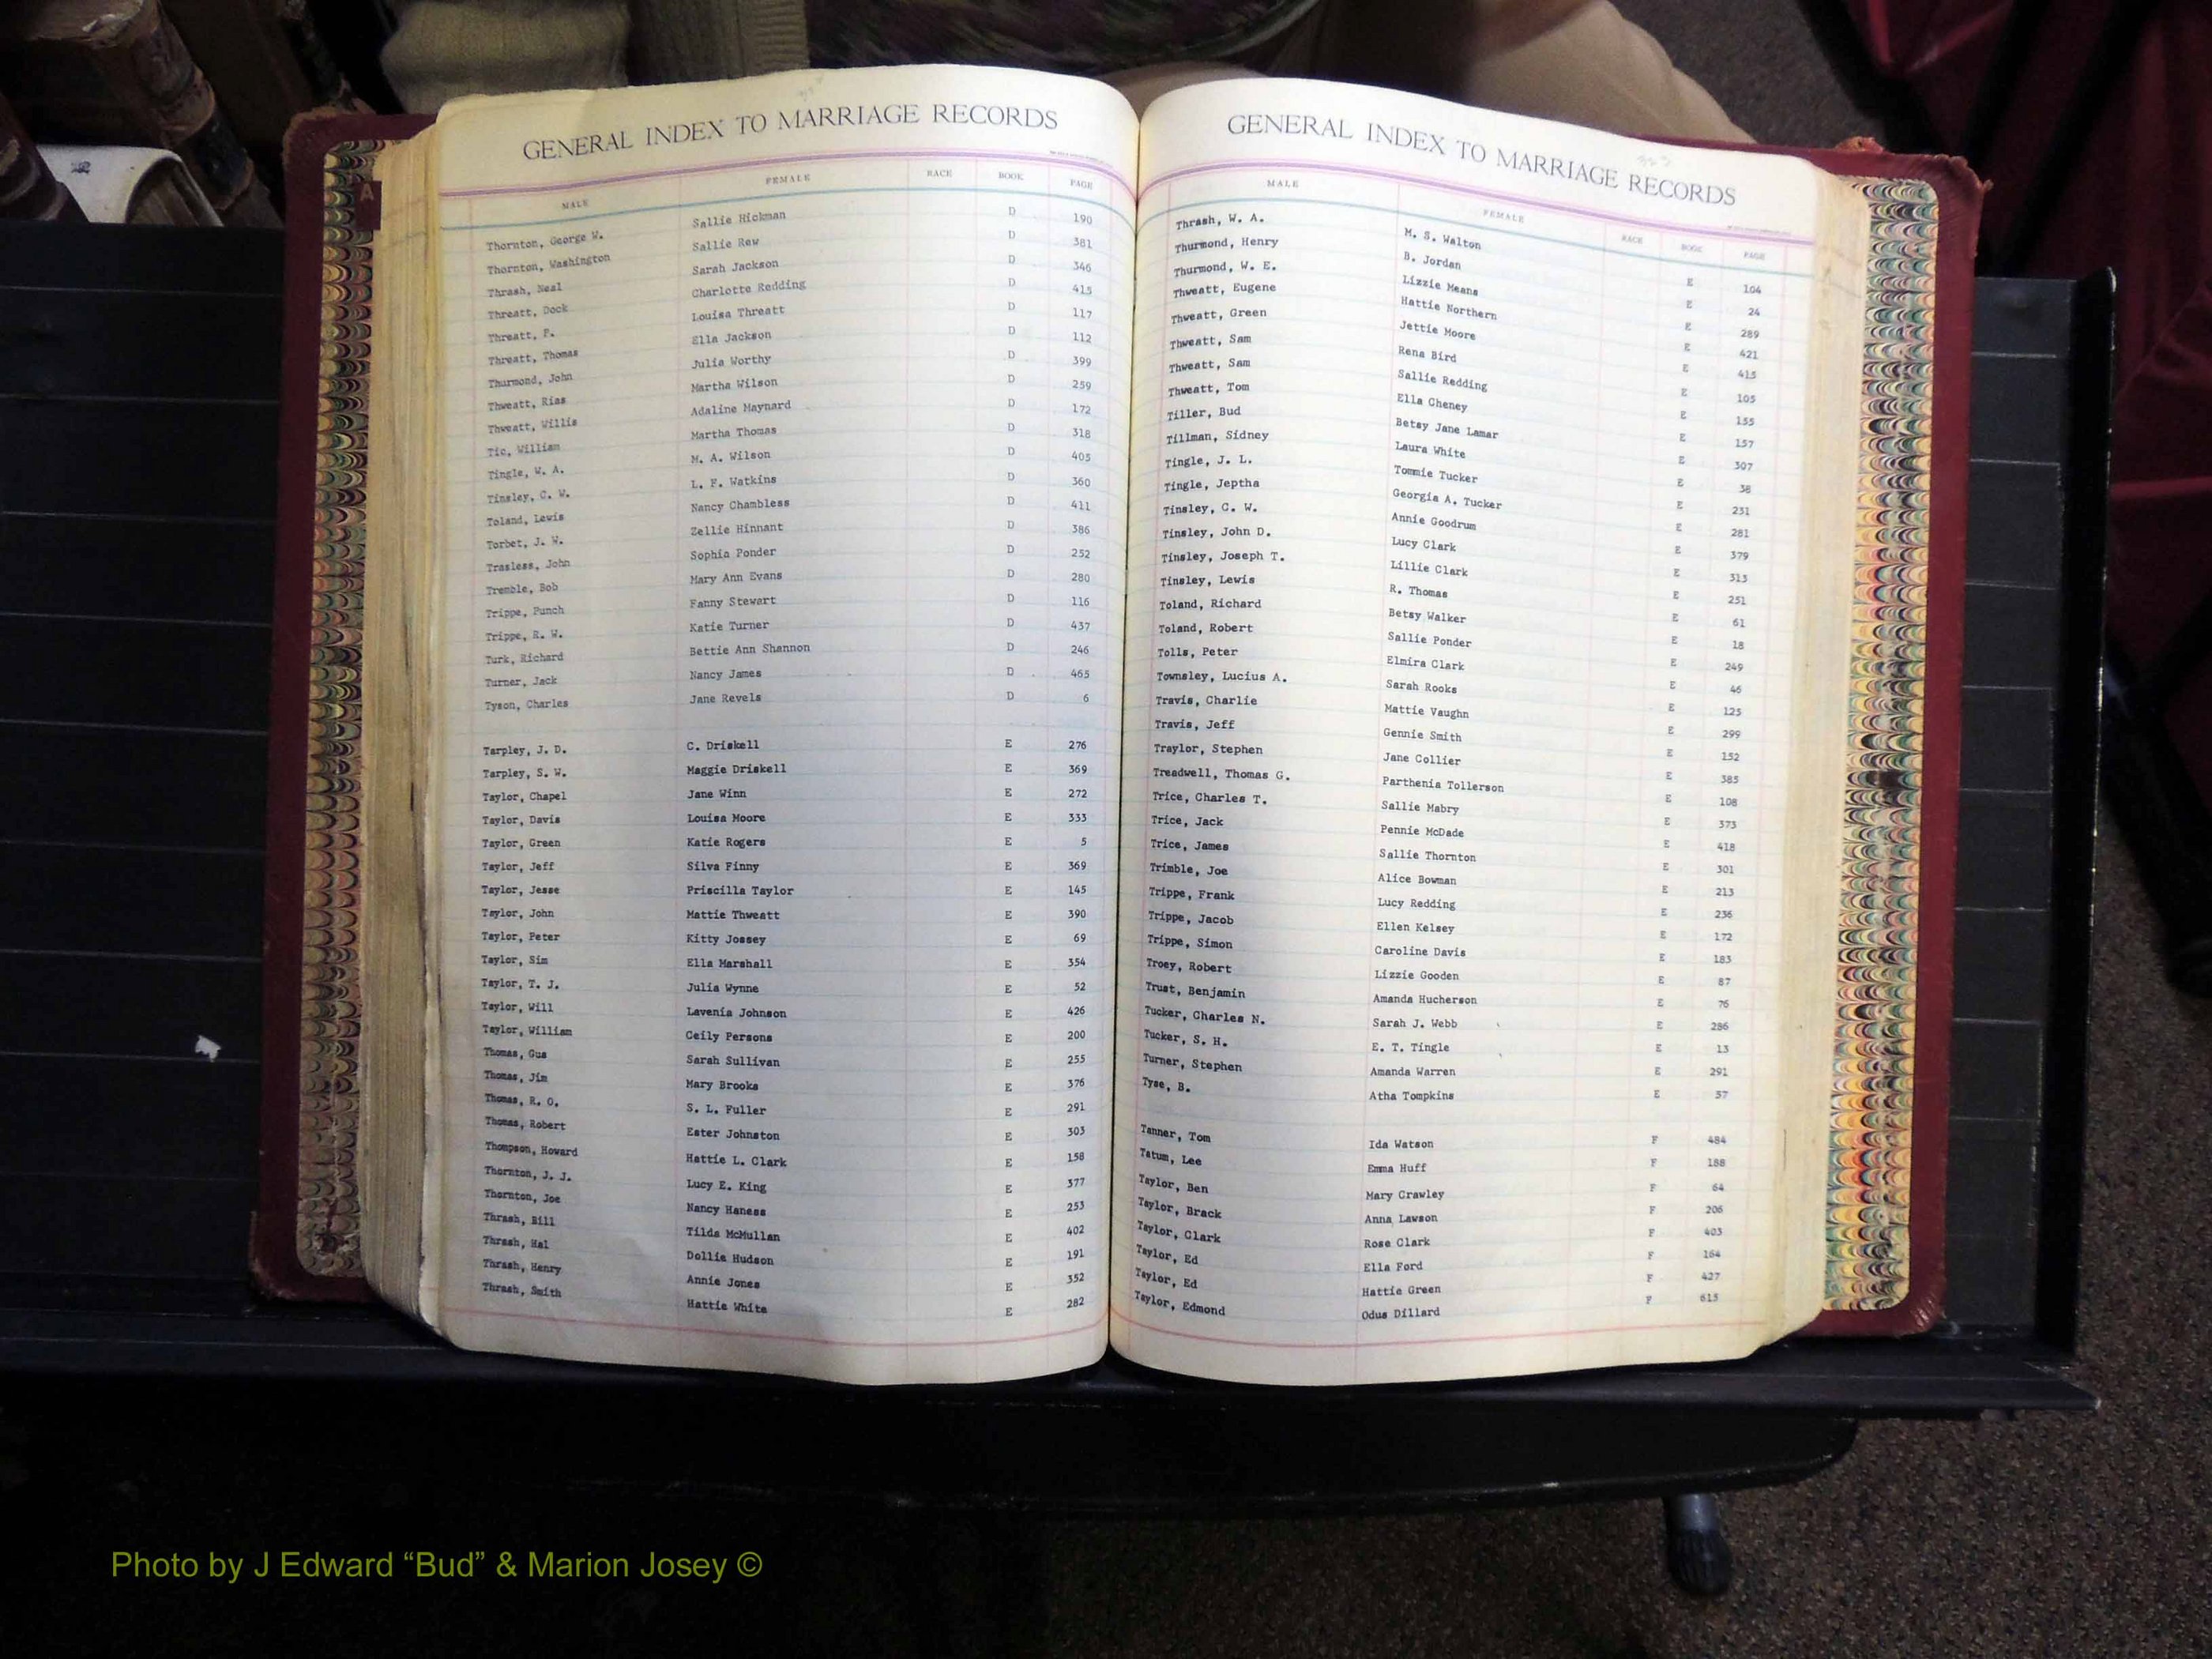 GENERAL INDEX TO MARRIAGE RECORDS
MALE FEMALE RACE BOOK PAGE
Thornton, George W. Sallie Hickman D 190
Thornton, Washington Sallie Rew D 381
Thrash, Neal Sarah Jackson D 346
Threatt, Dock Charlotte Redding D 415
Threatt, F. Louisa Threatt D 117
Threatt, Thomas Ella Jackson D 112
Thurmond, John Julia Worthy D 399
Thweatt, Rias Martha Wilson D 259
Thweatt, Willis Adaline Maynard D 172
Tic, William Martha Thomas D 318
Tingle, W. A. M. A. Wilson D 405
Tinsley, C. W. L. F. Watkins D 360
Toland, Lewis Nancy Chambless D 411
Torbet, J. W. Zellie Hinnant D 386
Trasless, John Sophia Ponder D 252
Tremble, Bob Mary Ann Evans D 280
Trippe, Punch Fanny Stewart D 116
Trippe, R. W. Katie Turner D 437
Turk, Richard Bettie Ann Shannon D 246
Turner, Jack Nancy James D 465
Tyson, Charles Jane Revels D 6
Tarpley, J. D. C. Driskell E 276
Tarpley, S. W. Maggie Driskell E 369
Taylor, Chapel Jane Winn E 272
Taylor, Davis Louisa Moore E 333
Taylor, Green Katie Rogers E 5
Taylor, Jeff Silva Finny E 369
Taylor, Jesse Priscilla Taylor E 145
Taylor, John Mattie Thweatt E 390
Taylor, Peter Kitty Jossey E 69
Taylor, Sim Ella Marshall E 354
Taylor, T. J. Julia Wynne E 52
Taylor, Will Lavenia Johnson E 426
Taylor, William Ceily Persons E 200
Thomas, Gus Sarah Sullivan E 255
Thomas, Jim Mary Brooks E 376
Thomas, R. O. S. L. Fuller E 291
Thomas, Robert Ester Johnston E 303
Thompson, Howard Hattie L. Clark E 158
Thornton, J. J. Lucy E. King E 377
Thornton, Joe Nancy Haness E 253
Thrash, Bill Tilda McMullan E 402
Thrash, Hal Dollie Hudson E 191
Thrash, Henry Annie Jones E 352
Thrash, Smith Hattie White E 282
GENERAL INDEX TO MARRIAGE RECORDS
MALE FEMALE RACE BOOK PAGE
Thrash, W. A. M. S. Walton E 104
Thurmond, Henry B. Jordan E 24
Thurmond, W. E. Lizzie Means E 289
Thweatt, Eugene Hattie Northern E 421
Thweatt, Green Jettie Moore E 415
Thweatt, Sam Rena Bird E 105
Thweatt, Sam Sallie Redding E 155
Thweatt, Tom Ella Cheney E 157
Tiller, Bud Betsy Jane Lamar E 307
Tillman, Sidney Laura White E 38
Tingle, J. L. Tommie Tucker E 231
Tingle, Jeptha Georgia A. Tucker E 281
Tinsley, C. W. Annie Goodrum E 379
Tinsley, John D. Lucy Clark E 313
Tinsley, Joseph T. Lillie Clark E 251
Tinsley, Lewis R. Thomas E 61
Toland, Richard Betsy Walker E 18
Toland, Robert Sallie Ponder E 249
Tolls, Peter Elmira Clark E 46
Townsley, Lucius A. Sarah Rooks E 125
Travis, Charlie Mattie Vaughn E 299
Travis, Jeff Gennie Smith E 152
Traylor, Stephen Jane Collier E 385
Treadwell, Thomas G. Parthenia Tollerson E 108
Trice, Charles T. Sallie Mabry E 373
Trice, Jack Pennie McDade E 418
Trice, James Sallie Thornton E 301
Trimble, Joe Alice Bowman E 213
Trippe, Frank Lucy Redding E 236
Trippe, Jacob Ellen Kelsey E 172
Trippe, Simon Caroline Davis E 183
Troey, Robert Lizzie Gooden E 87
Trust, Benjamin Amanda Hucherson E 76
Tucker, Charles N. Sarah J. Webb E 286
Tucker, S. H. E. T. Tingle E 13
Turner, Stephen Amanda Warren E 291
Tyse, B. Atha Tompkins E 57
Tanner, Tom Ida Watson F 484
Tatum, Lee Emma Huff F 188
Taylor, Ben Mary Crawley F 64
Taylor, Brack Anna Lawson F 206
Taylor, Clark Rose Clark F 403
Taylor, Ed Ella Ford F 164
Taylor, Ed Hattie Green F 427
Taylor, Edmond Odus Dillard F 615
Photo by J Edward “Bud” & Marion Josey ©